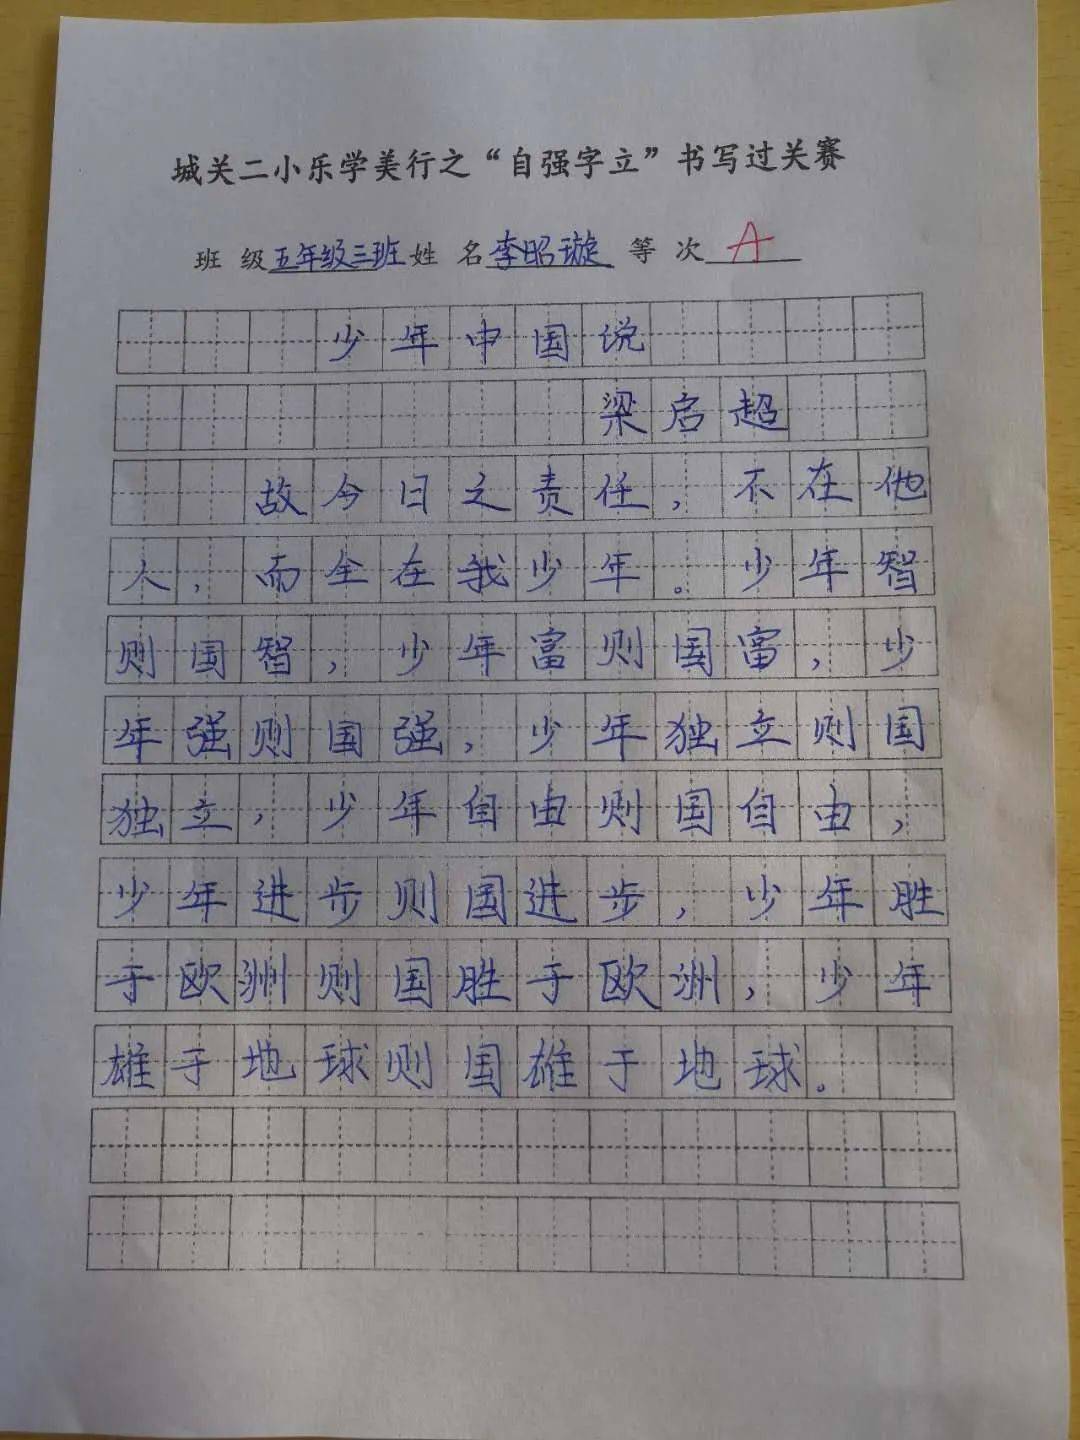 城关二小乐学美行之“自强字立”书写过关赛
班 级五年级三班姓 名李昭璇 等 次 A
少年中国说
梁启超
故今日之责任，不在他
人，而全在我少年。少年智
则国智，少年富则国富，少
年强则国强，少年独立则国
独立，少年自由则国自由，
少年进步则国进步，少年胜
于欧洲则国胜于欧洲，少年
雄于地球则国雄于地球。